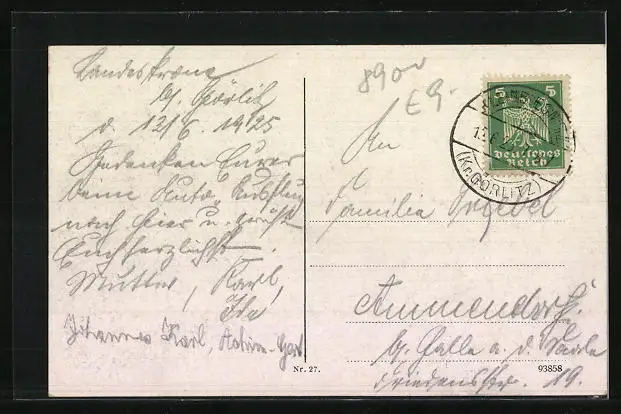 Landeskrone
b/ Görlitz
d. 12/6. 1925
Gedenken Eurer
beim Auto Ausflug
nach hier u. grüßt
Euch herzlichst.
Mutter, Karl,
Ida
Johannes Karl,
8900
E 9.
5 5
Deutsches
Reich
(Kr. GÖRLITZ)
An
Familie
Ammendorf
b/ Halle a. d. Saale
Friedensstr. 19.
Nr. 27.
93858